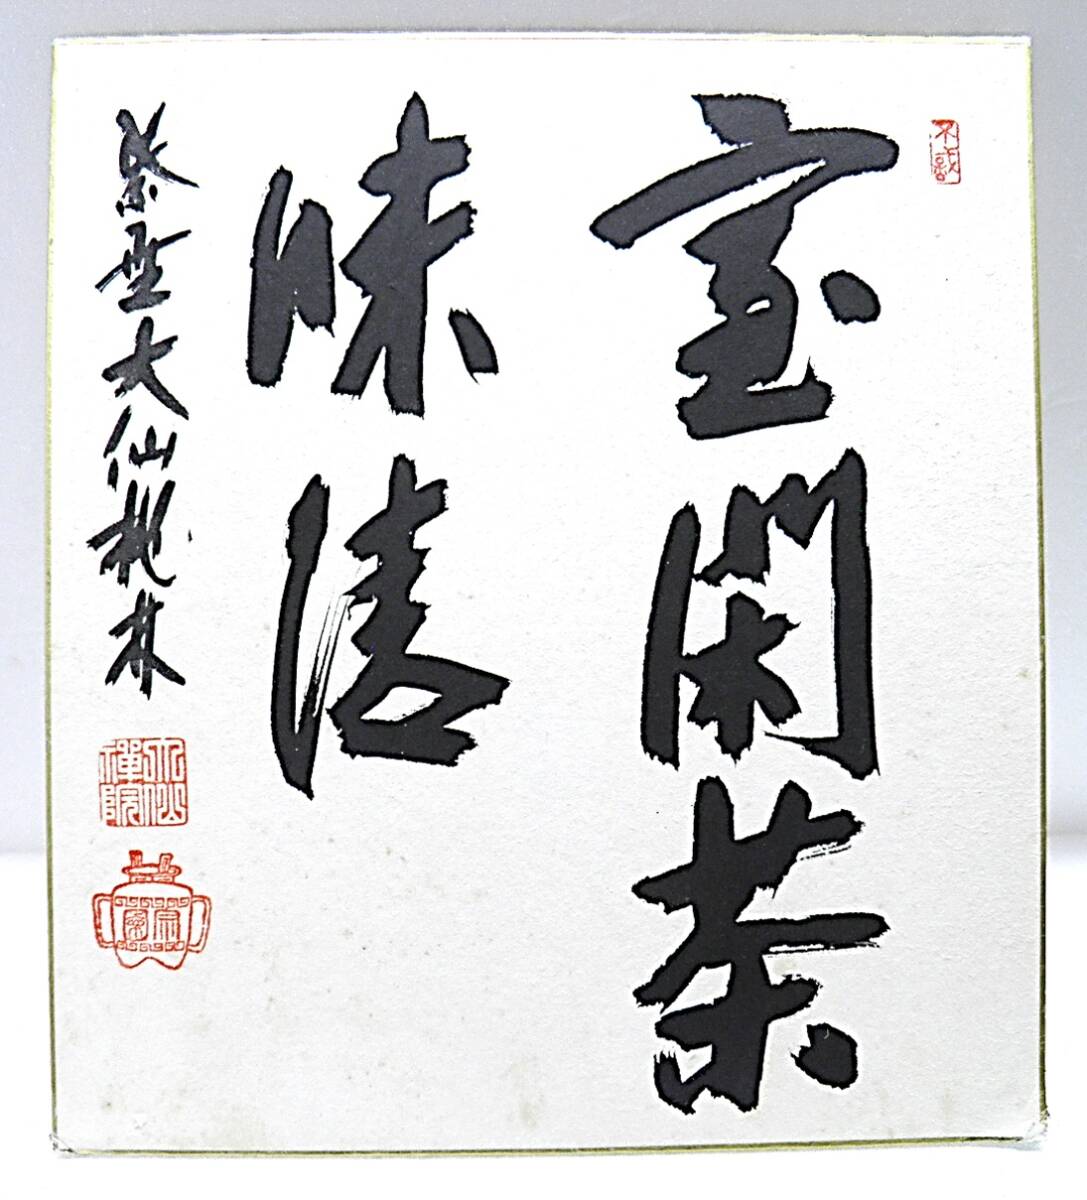 室閑茶
味清
紫野大仙桃林
大仙
禅院